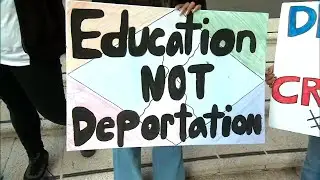 Education
NOT
Deportation